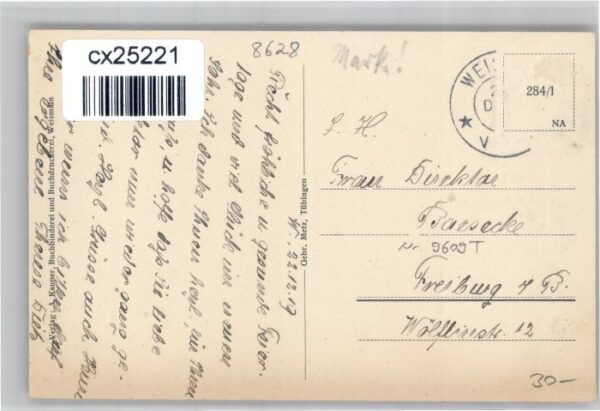 cx25221
8628
Marke!
WEI
284/1
NA
W. 22.12.19
Recht fröhliche u. gesunde Feier-
tage und viel Glück im neuen
Jahr. Ich danke Ihnen herzl. für Ihren
u. hoffe daß Sie liebe
nun wieder ganz ge-
sind. Herzl. Grüsse auch Ihrem
muss ich bitten
Ihre ergebene
Verlag: A. Kauper, Buchbinderei und Buchdruckerei, Weismain
Gebr. Metz, Tübingen
S. H.
Frau Direktor
Baesecke
Nr. 9609 T
Freiburg i/B.
Wölflinstr. 12
30-